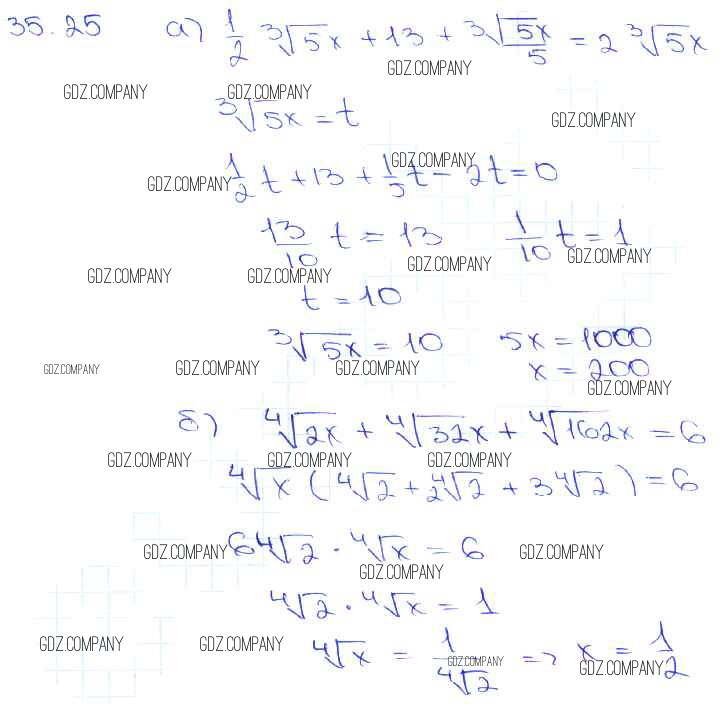 35.25 а) 1/2 ∛5x + 13 + ∛5x/5 = 2 ∛5x
GDZ.COMPANY
GDZ.COMPANY GDZ.COMPANY
∛5x = t
GDZ.COMPANY
GDZ.COMPANY
GDZ.COMPANY 1/2 t + 13 + 1/5 t - 2t = 0
13/10 t = 13 1/10 t = 1
GDZ.COMPANY GDZ.COMPANY GDZ.COMPANY GDZ.COMPANY
t = 10
∛5x = 10 5x = 1000
GDZ.COMPANY GDZ.COMPANY GDZ.COMPANY x = 200
GDZ.COMPANY
б) ∜2x + ∜32x + ∜162x = 6
GDZ.COMPANY GDZ.COMPANY GDZ.COMPANY
∜x (∜2 + 2∜2 + 3∜2) = 6
GDZ.COMPANY 6∜2 · ∜x = 6 GDZ.COMPANY
GDZ.COMPANY
∜2 · ∜x = 1
GDZ.COMPANY GDZ.COMPANY ∜x = 1/∜2 => x = 1/2
GDZ.COMPANY GDZ.COMPANY